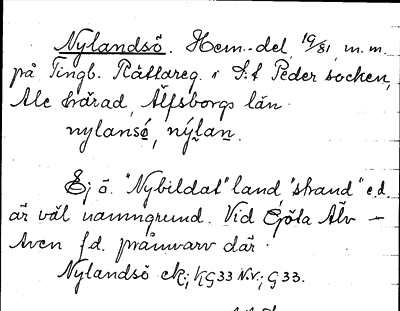 Nylandsö. Hem.-del 19/81, m.m.
på Tingb. Rättareg. i S:t Peder socken,
Ale härad, Älfsborgs län.
nylansé, nýlan.
Ej ö. "Nybildat" land "strand" e.d.
är väl namngrund. Vid Göta Älv –
Även f.d. pråmvarv där.
Nylandsö ek; KG33 N.V.; G33.